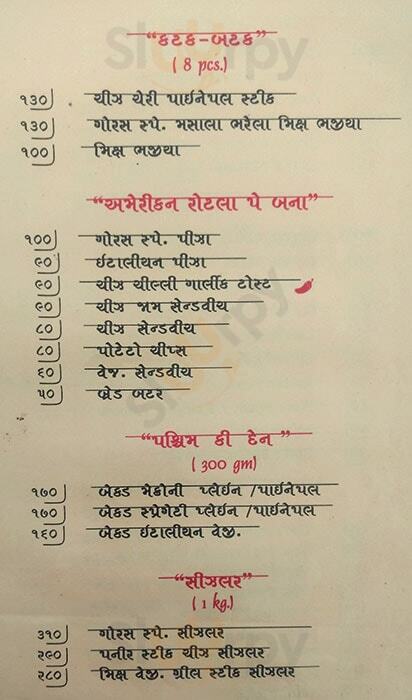 "કટક-બટક"
( 8 pcs.)
૧૩૦ ચીઝ ચેરી પાઈનેપલ સ્ટીક
૧૩૦ ગોરસ સ્પે. મસાલા ભરેલા મિક્ષ ભજીયા
૧૦૦ મિક્ષ ભજીયા
"અમેરીકન રોટલા પે બના"
૧૦૦ ગોરસ સ્પે. પીઝા
૯૦ ઈટાલીયન પીઝા
૯૦ ચીઝ ચીલ્લી ગાર્લીક ટોસ્ટ
૯૦ ચીઝ જામ સેન્ડવીચ
૮૦ ચીઝ સેન્ડવીચ
૮૦ પોટેટો ચીપ્સ
૬૦ વેજ. સેન્ડવીચ
૫૦ બ્રેડ બટર
"પશ્ચિમ કી દેન"
( 300 gm)
૧૭૦ બેકડ મેકોની પ્લેઈન /પાઈનેપલ
૧૭૦ બેકડ સ્પ્રેગેટી પ્લેઈન /પાઈનેપલ
૧૬૦ બેકડ ઈટાલીયન વેજી.
"સીઝલર"
( 1 kg.)
૩૧૦ ગોરસ સ્પે. સીઝલર
૨૯૦ પનીર સ્ટીક ચીઝ સીઝલર
૨૮૦ મિક્ષ વેજી. ગ્રીલ સ્ટીક સીઝલર